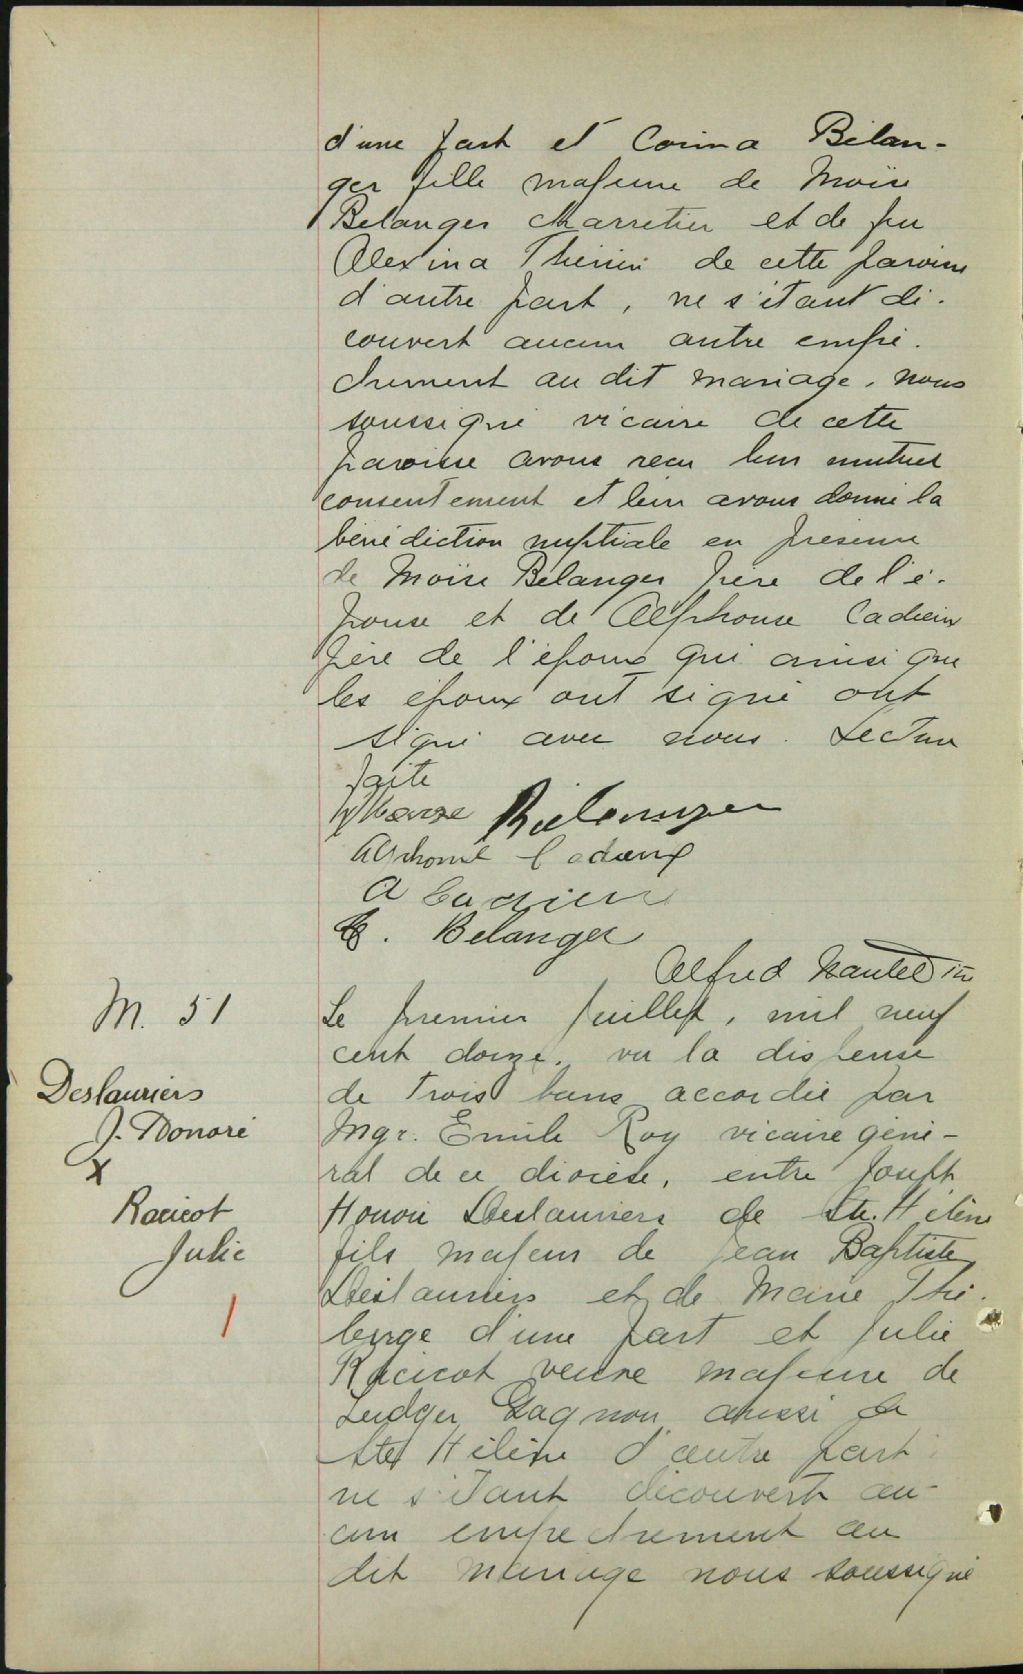 d'une part et Corinna Bélan-
ger fille majeure de Moïse
Belanger charretier et de feu
Alexina Thérien de cette paroisse
d'autre part, ne s'étant dé-
couvert aucun autre empê-
chement au dit mariage, nous
soussigné vicaire de cette
paroisse avons reçu leur mutuel
consentement et leur avons donné la
bénédiction nuptiale en présence
de Moïse Bélanger père de l'é-
pouse et de Alphonse Cadieux
père de l'époux qui ainsi que
les époux ont signé ont
signé avec nous. Lecture
faite
Moïse Bélanger
Alphonse Cadieux
A Cadieux
C. Belanger
Alfred Nantel ptre
M. 51
Deslauriers
J. Honoré
X
Racicot
Julie
1
Le premier Juillet, mil neuf
cent douze, vu la dispense
de trois bans accordée par
Mgr. Emile Roy vicaire géné-
ral de ce diocèse, entre Joseph
Honoré Deslauriers de Ste. Hélène
fils majeur de Jean Baptiste
Deslauriers et de Marie Thé-
berge d'une part et Julie
Racicot veuve majeure de
Ludger Gagnon aussi de
Ste Hélène d'autre part
ne s'étant découvert au-
cun empêchement au
dit mariage nous soussigné